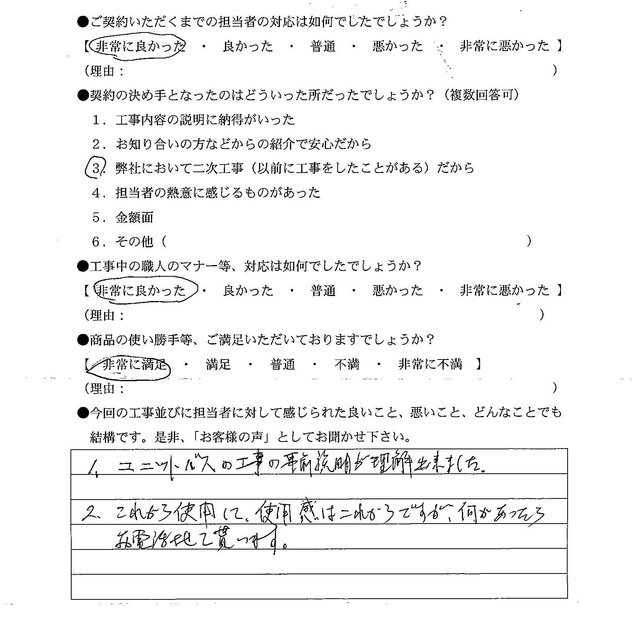 ●ご契約いただくまでの担当者の対応は如何でしたでしょうか？
【 非常に良かった ・ 良かった ・ 普通 ・ 悪かった ・ 非常に悪かった 】
（理由： ）
●契約の決め手となったのはどういった所だったでしょうか？（複数回答可）
１．工事内容の説明に納得がいった
２．お知り合いの方などからの紹介で安心だから
３．弊社において二次工事（以前に工事をしたことがある）だから
４．担当者の熱意に感じるものがあった
５．金額面
６．その他（ ）
●工事中の職人のマナー等、対応は如何でしたでしょうか？
【 非常に良かった ・ 良かった ・ 普通 ・ 悪かった ・ 非常に悪かった 】
（理由： ）
●商品の使い勝手等、ご満足いただいておりますでしょうか？
【 非常に満足 ・ 満足 ・ 普通 ・ 不満 ・ 非常に不満 】
（理由： ）
●今回の工事並びに担当者に対して感じられた良いこと、悪いこと、どんなことでも
結構です。是非、「お客様の声」としてお聞かせ下さい。
1、ユニットバスの工事の事前説明が理解出来ました。
2、これから使用して、使用感はこれからですが、何かあったら
お電話させて貰います。